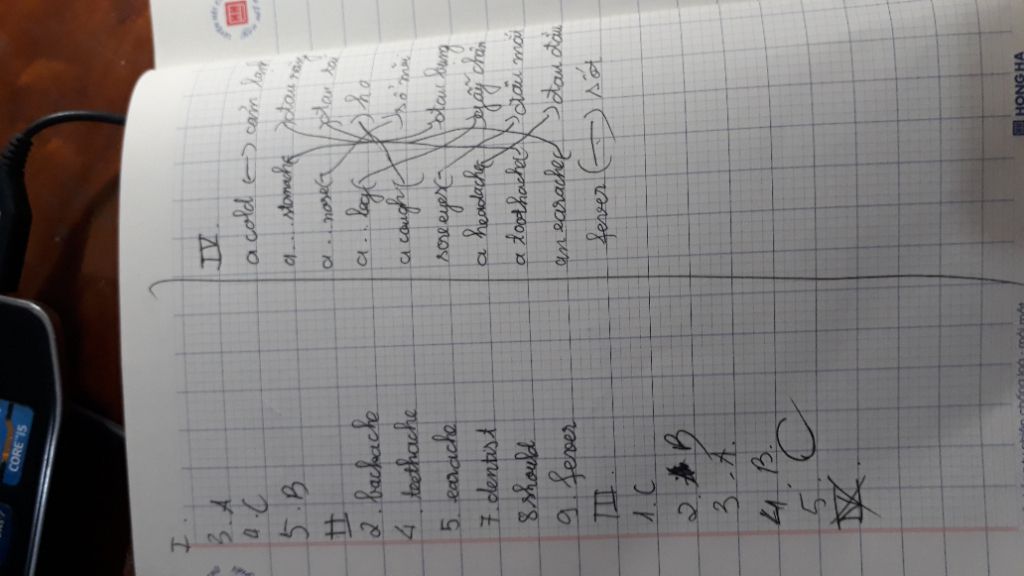 I.
3. A
4. C
5. B
II
2. backache
4. toothache
5. earache
7. dentist
8. should
9. fever
III
1. C
2. B
3. A.
4. B.
5. C
IV
IV.
a cold <-> cảm lạnh
a... stomach đau răng
a... nose đau tai
a... leg ho
a cough sổ mũi
sore eyes đau bụng
a headache gãy chân
a toothache đau mắt
an earache đau đầu
fever <-> sốt
HONG HA
CORE i5